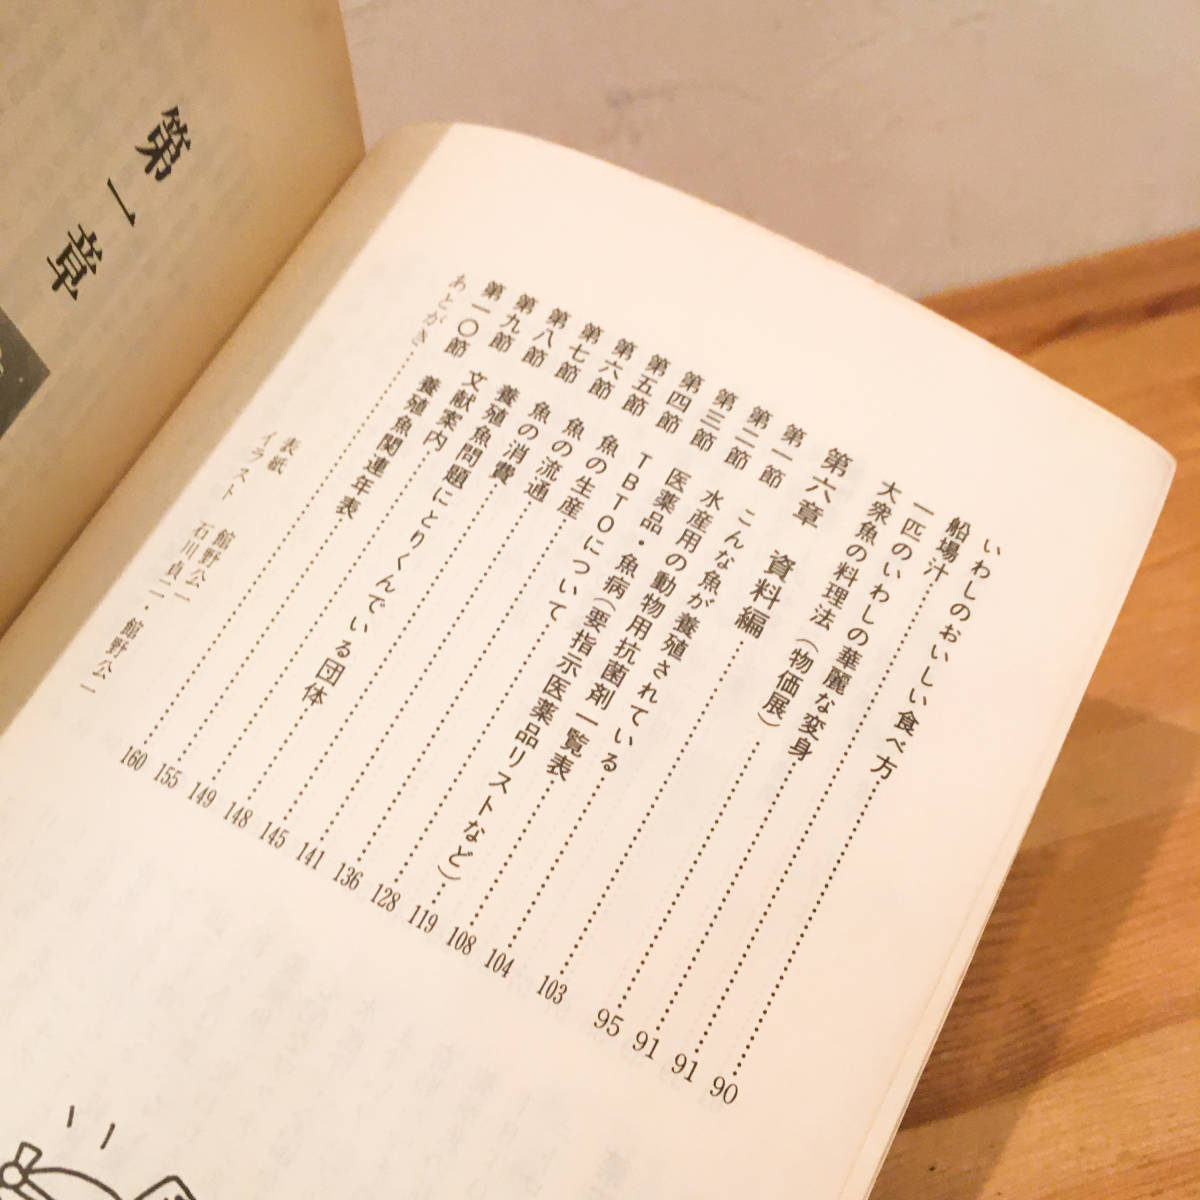 いわしのおいしい食べ方……90
船場汁……91
一匹のいわしの華麗な変身……91
大衆魚の料理法(物価展)……95
第六章 資料編……103
第一節 こんな魚が養殖されている……104
第二節 水産用の動物用抗菌剤一覧表……108
第三節 医薬品・魚病(要指示医薬品リストなど)……119
第四節 TBTOについて……128
第五節 魚の生産……136
第六節 魚の流通……141
第七節 魚の消費……145
第八節 養殖魚問題にとりくんでいる団体……148
第九節 文献案内……149
第一〇節 養殖魚関連年表……155
あとがき……160
表紙 館野公一
イラスト 石川貞二・館野公一
第一章